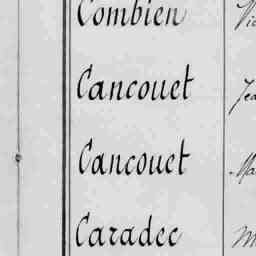 Combien
Cancouet
Cancouet
Caradec